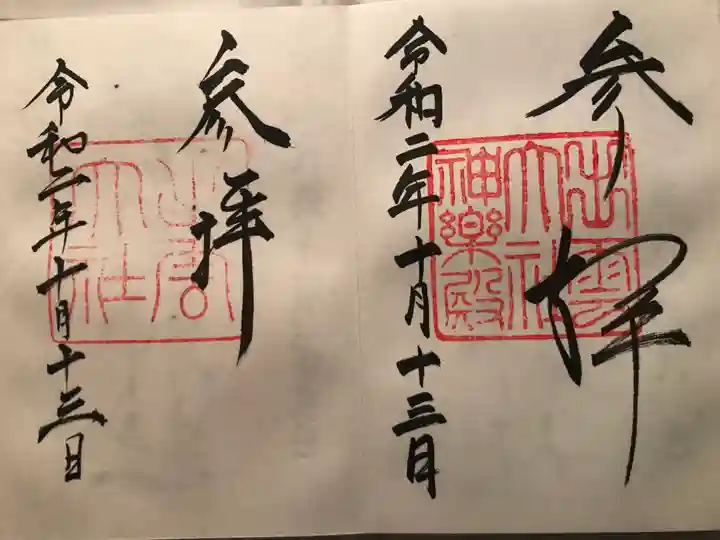 参拝
出雲
大社
神楽殿
令和二年十月十三日
参拝
出雲
大社
令和二年十月十三日